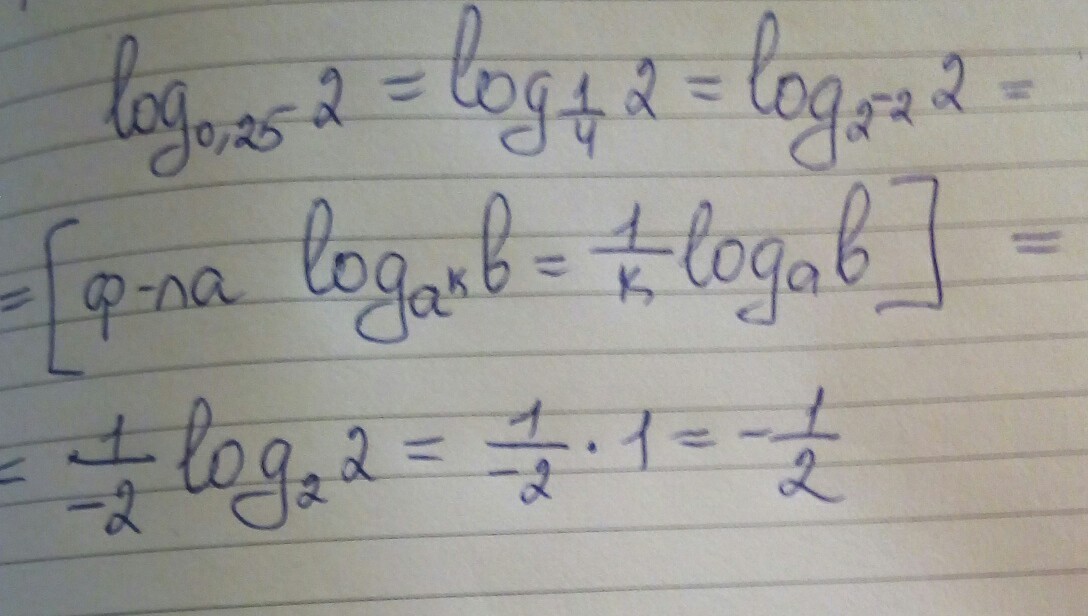 log₀,₂₅ 2 = log_{1/4} 2 = log_{2⁻²} 2 =
= [ф-ла log_{aᵏ} b = 1/k logₐ b] =
= 1/-2 log₂ 2 = 1/-2 · 1 = -1/2